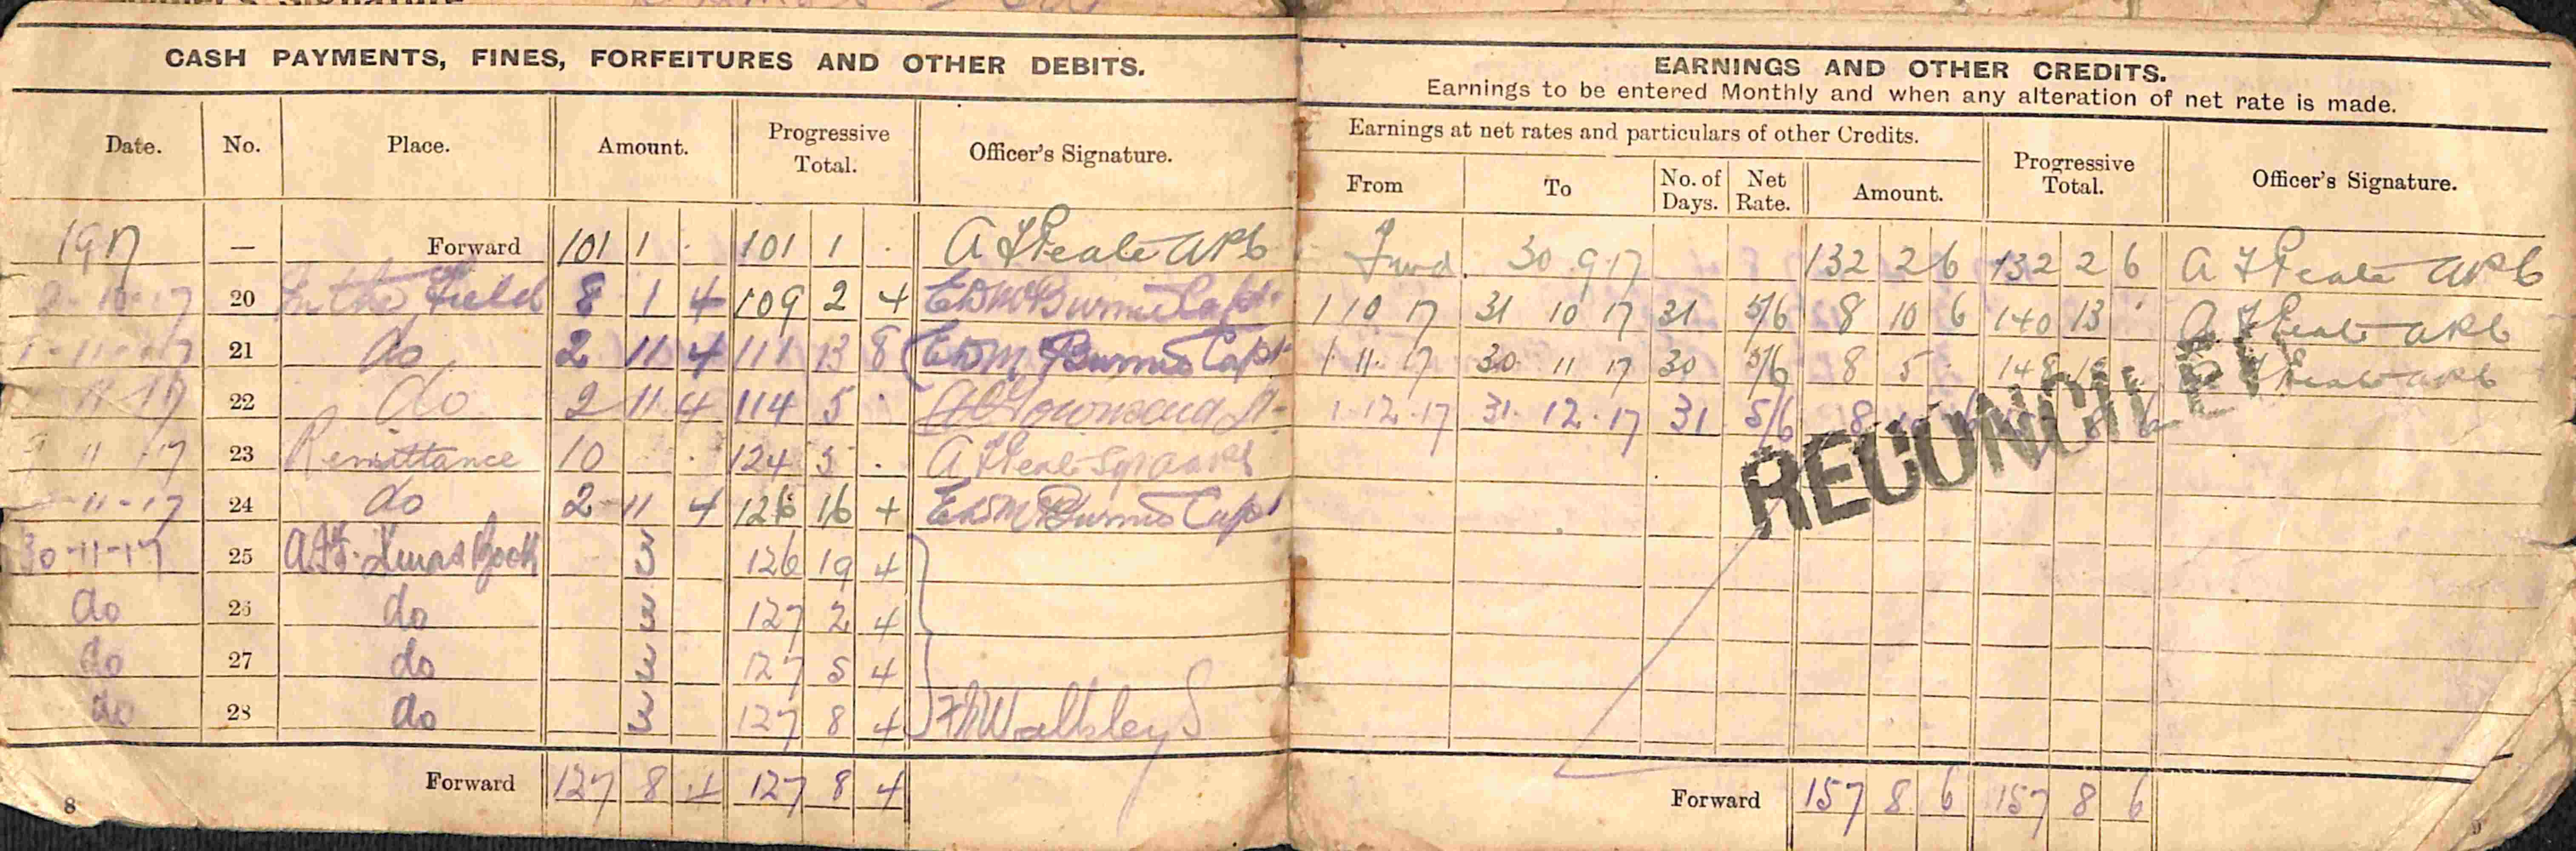 CASH PAYMENTS, FINES, FORFEITURES AND OTHER DEBITS.
Date. No. Place. Amount. Progressive Total. Officer's Signature.
1917 — Forward 101 1 . 101 1 .
10-17 20 In the Field 8 1 4 109 2 4 Capt.
11-17 21 do 2 11 4 111 13 8 Capt
11 17 22 do 2 11 4 114 5 .
11 17 23 Remittance 10 . 124 5 .
11-17 24 do 2 11 4 126 16 4 Capt
30-11-17 25 Xmas Book 3 126 19 4
do 26 do 3 127 2 4
do 27 do 3 127 5 4
do 28 do 3 127 8 4
Forward 127 8 4 127 8 4
8
EARNINGS AND OTHER CREDITS.
Earnings to be entered Monthly and when any alteration of net rate is made.
Earnings at net rates and particulars of other Credits. Progressive Total. Officer's Signature.
From To No. of Days. Net Rate. Amount.
Fwd. 30 9 17 132 2 6 132 2 6
1 10 17 31 10 17 31 5/6 8 10 6 140 13
1 11 17 30 11 17 30 5/6 8 5 148 18
1.12.17 31.12.17 31 5/6 8 10 6 8 6
RECONCILED
Forward 157 8 6 157 8 6
9